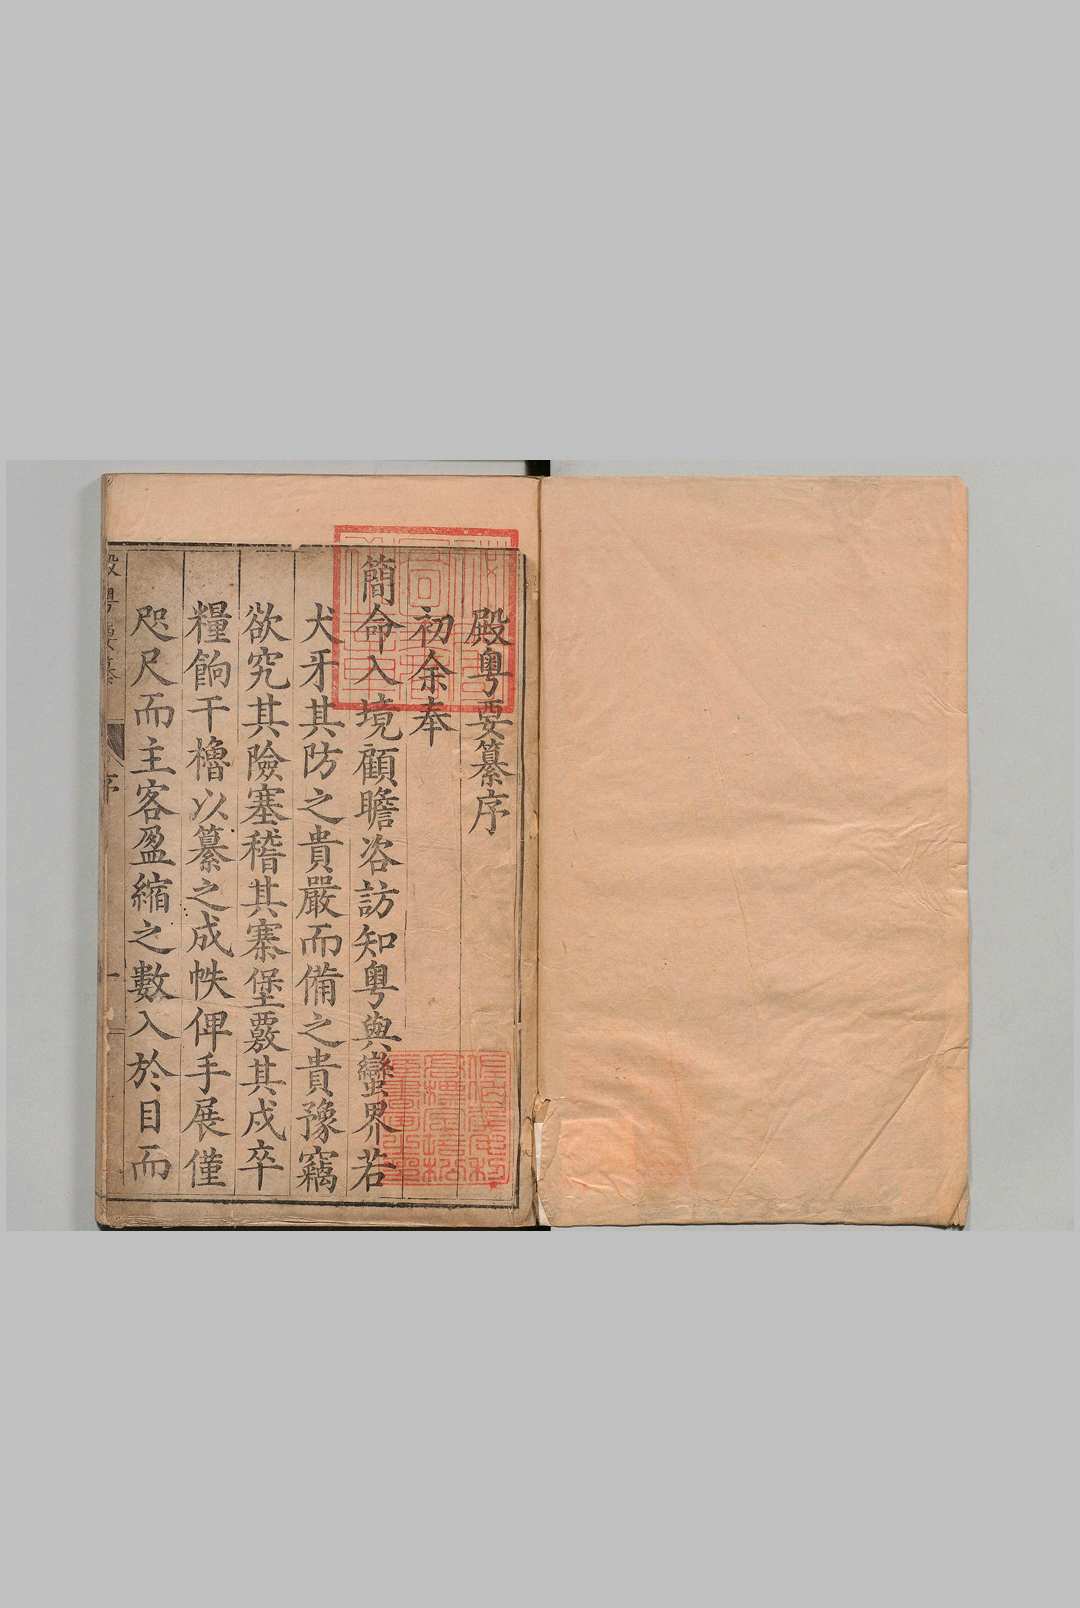 殿粤要纂序
初余奉
簡命入境顧瞻咨訪知粤與蠻界若
犬牙其防之貴嚴而備之貴豫竊
欲究其險塞稽其寨堡覈其戍卒
糧餉干櫓以纂之成帙俾手展僅
咫尺而主客盈縮之數入於目而
殿粤要纂
序
一